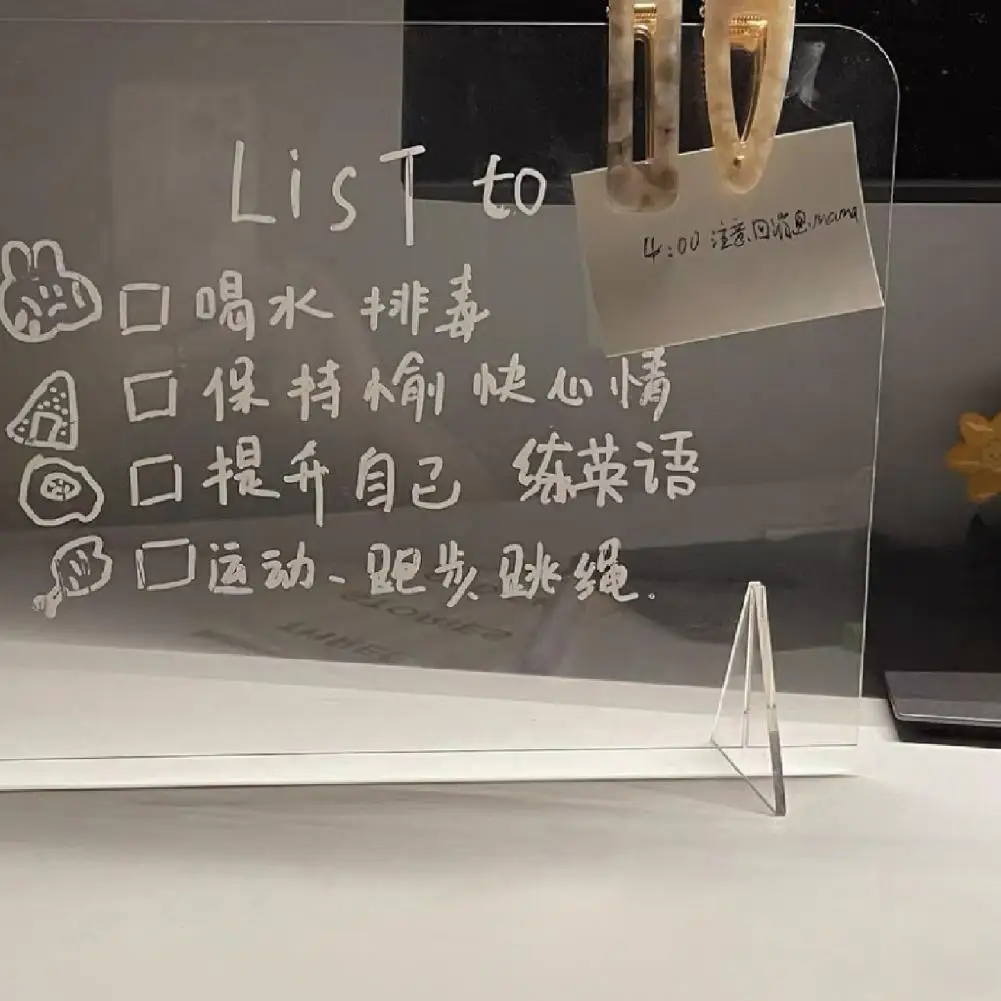 LisT to
4:00 注意回消息mama
喝水 排毒
保持愉快心情
提升自己 练英语
运动、跑步跳绳.